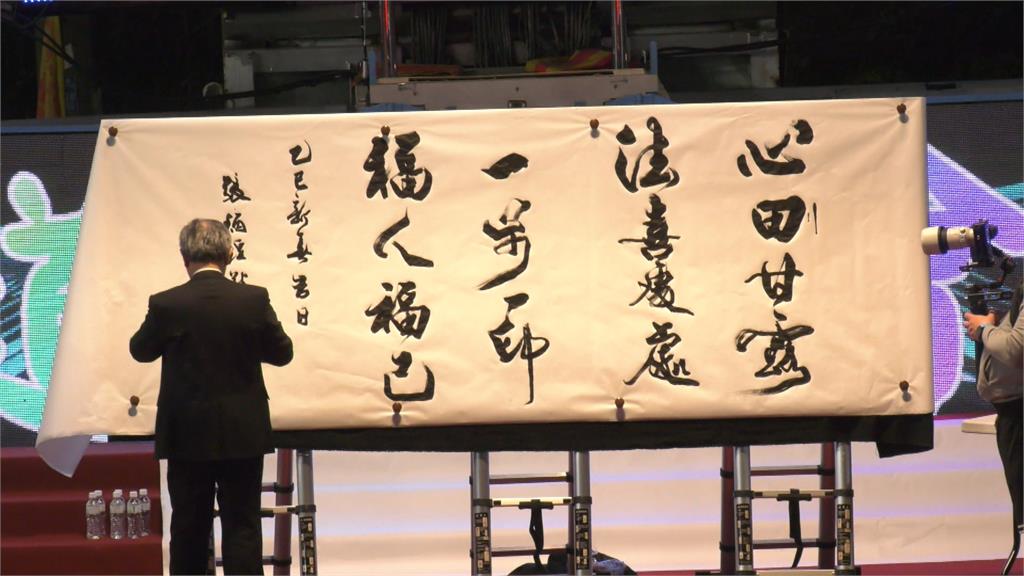 心田甘露
法喜處處
一步一印
福人福己
乙巳新春吉日
張